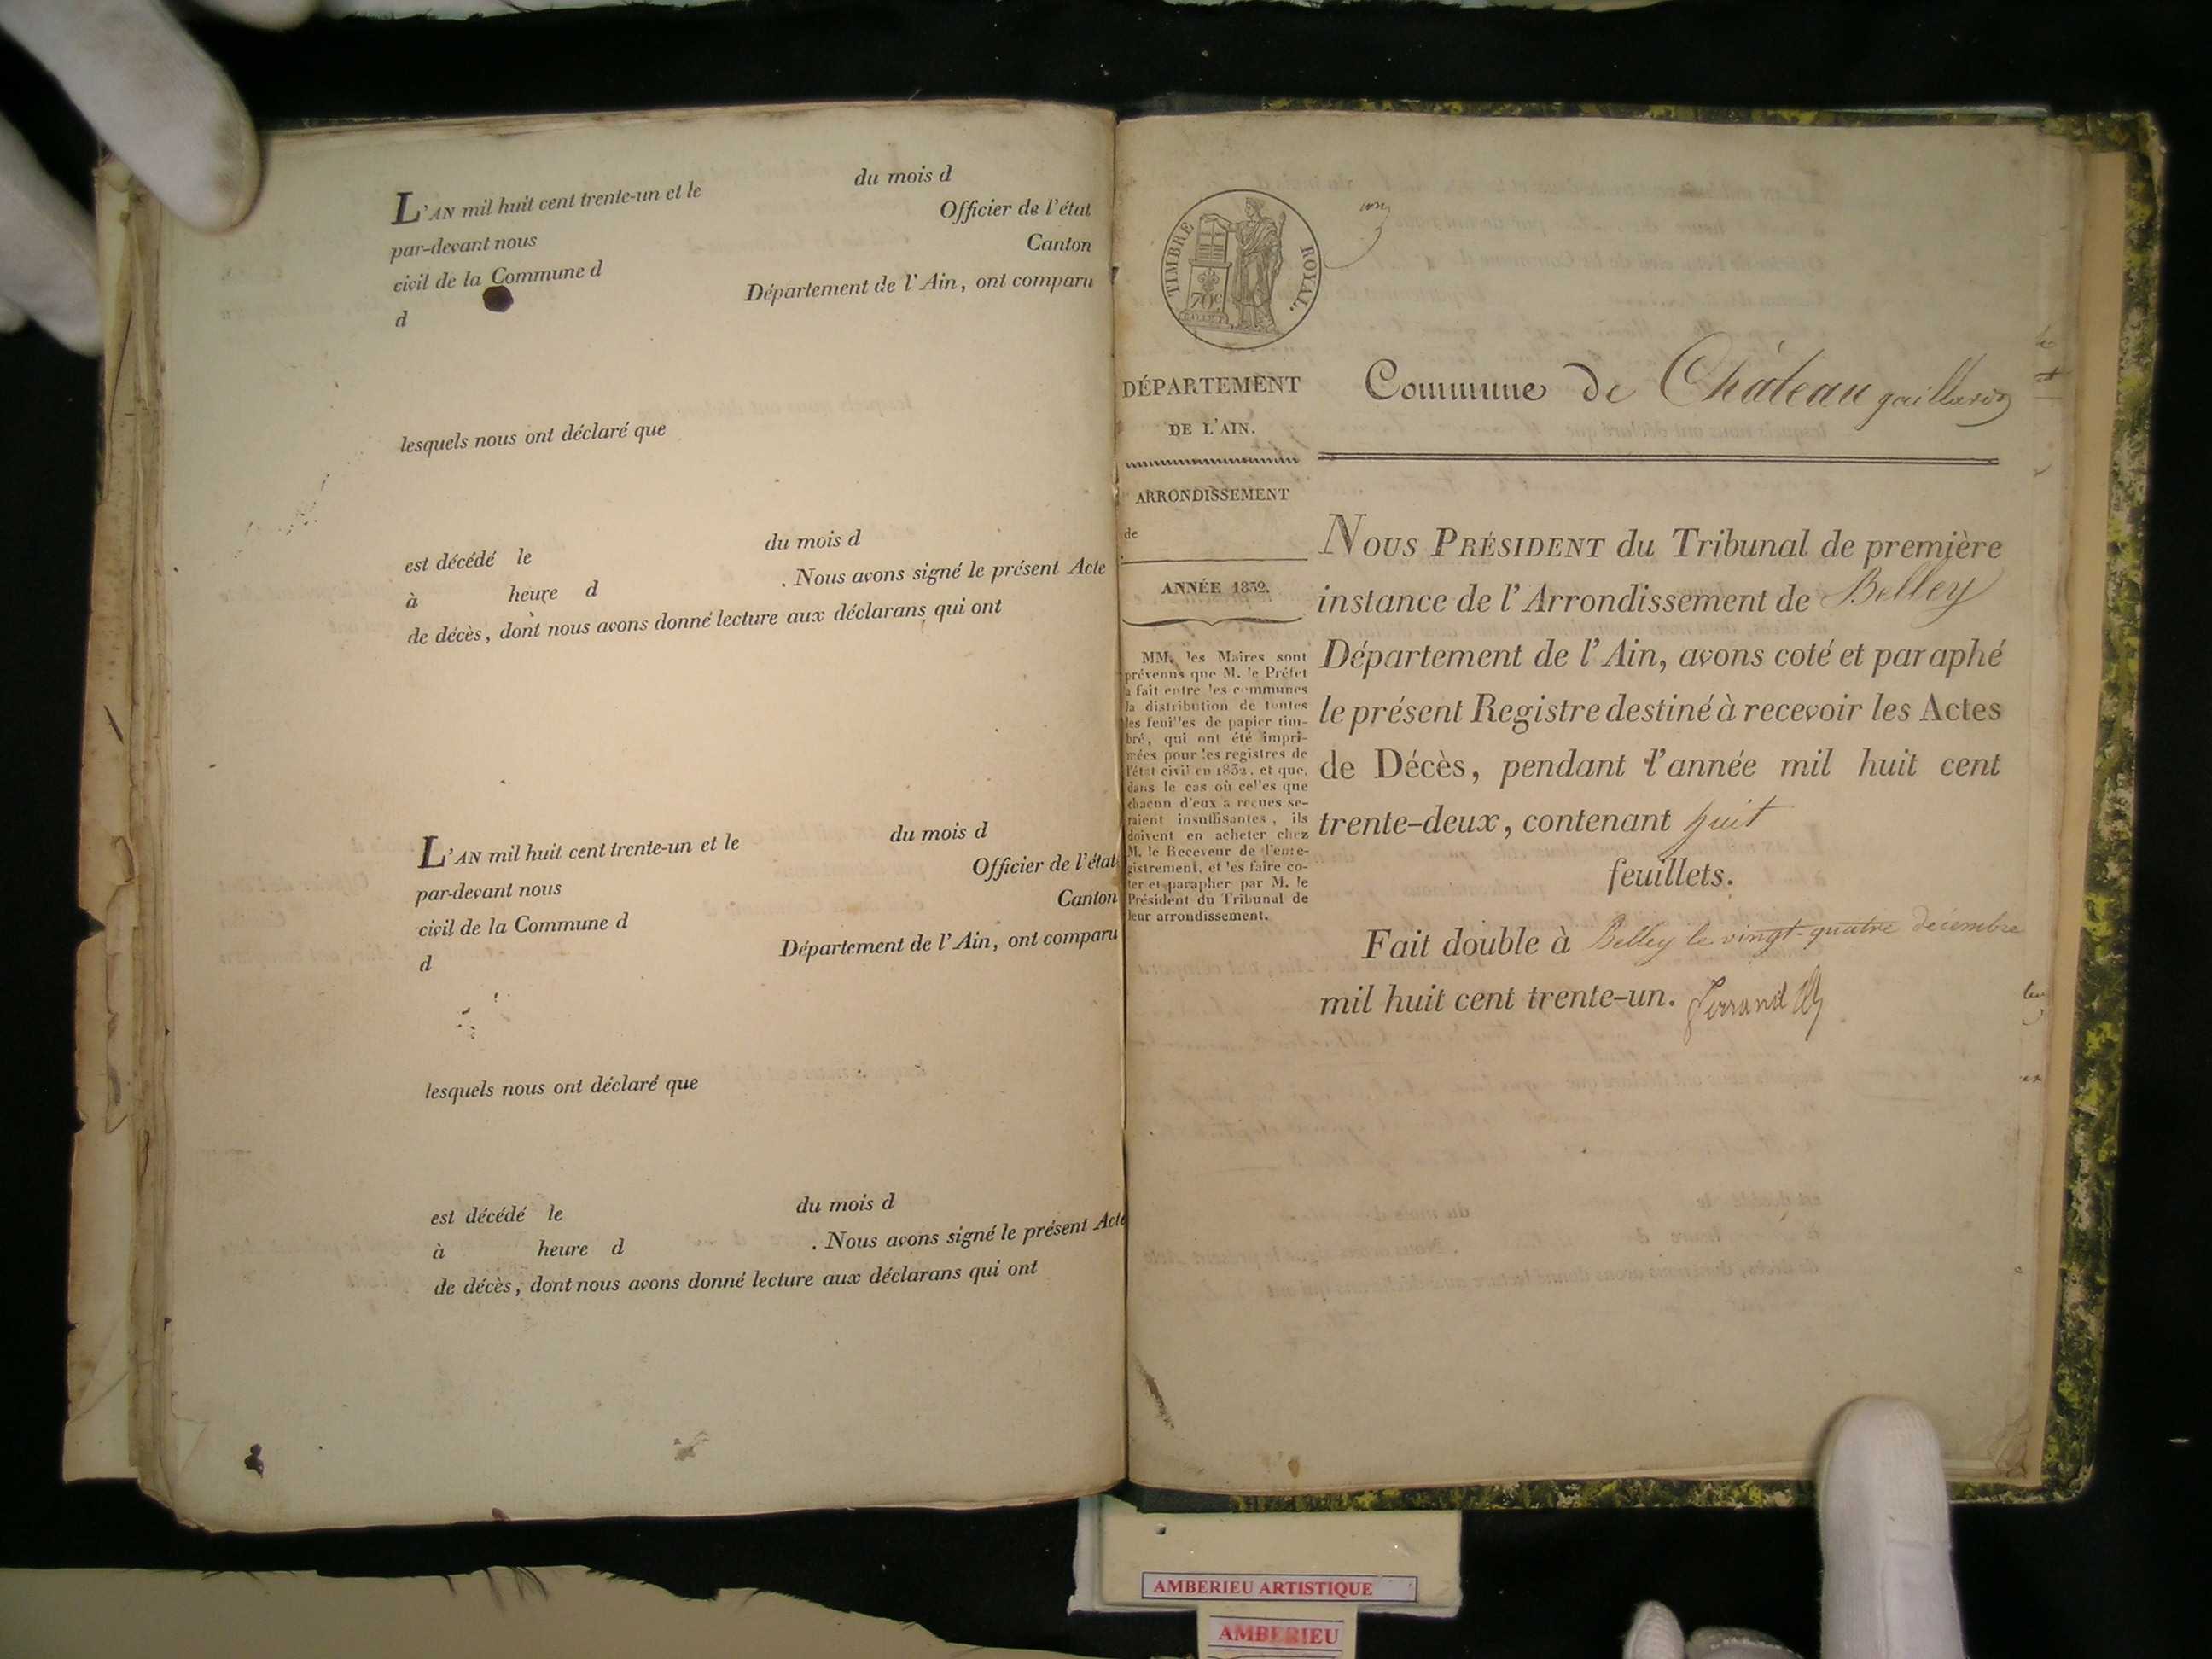 L'AN mil huit cent trente-un et le du mois d
par-devant nous Officier de l'état
civil de la Commune d Canton
d Département de l'Ain, ont comparu
lesquels nous ont déclaré que
est décédé le du mois d
à heure d . Nous avons signé le présent Acte
de décès, dont nous avons donné lecture aux déclarans qui ont
L'AN mil huit cent trente-un et le du mois d
par-devant nous Officier de l'état
civil de la Commune d Canton
d Département de l'Ain, ont comparu
lesquels nous ont déclaré que
est décédé le du mois d
à heure d . Nous avons signé le présent Acte
de décès, dont nous avons donné lecture aux déclarans qui ont
TIMBRE ROYAL.
70c
DÉPARTEMENT
DE L'AIN.
ARRONDISSEMENT
de
ANNÉE 1832.
MM. les Maires sont
prévenus que M. le Préfet
a fait entre les communes
la distribution de toutes
les feuilles de papier tim-
bré, qui ont été impri-
mées pour les registres de
l'état civil en 1832, et que,
dans le cas où celles que
chacun d'eux a reçues se-
raient insuffisantes, ils
doivent en acheter chez
M. le Receveur de l'enre-
gistrement, et les faire co-
ter et parapher par M. le
Président du Tribunal de
leur arrondissement.
Commune de Château gaillard
NOUS PRÉSIDENT du Tribunal de première
instance de l'Arrondissement de Belley
Département de l'Ain, avons coté et paraphé
le présent Registre destiné à recevoir les Actes
de Décès, pendant l'année mil huit cent
trente-deux, contenant huit
feuillets.
Fait double à Belley le vingt-quatre décembre
mil huit cent trente-un. Ferrand
AMBERIEU ARTISTIQUE
AMBERIEU